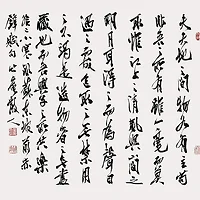 夫天地之間物各有主苟
非吾之所有雖一毫而莫
取惟江上之清風與山間之
明月耳得之而為聲目
遇之而成色取之無禁用
之不竭是造物者之無盡
藏也而吾與子之所共樂